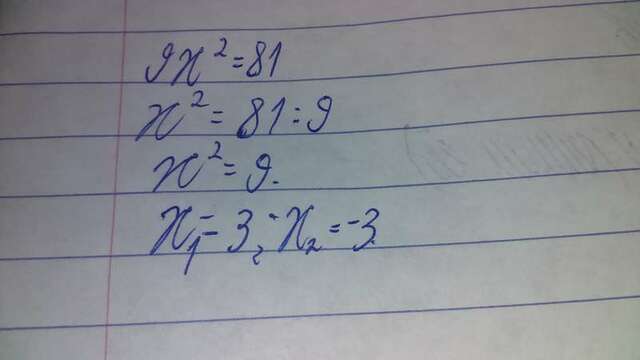 9x² = 81
x² = 81 : 9
x² = 9.
x₁ = 3, x₂ = -3